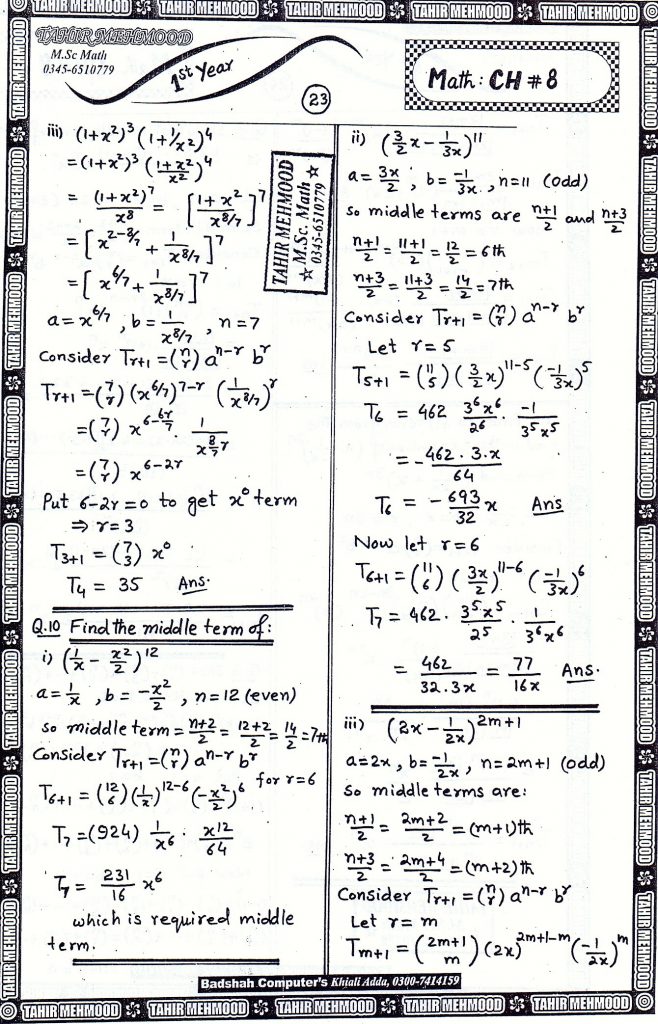 TAHIR MEHMOOD
M.Sc Math
0345-6510779
1st Year
23
Math : CH # 8
iii) (1+x²)³ (1+1/x²)⁴
= (1+x²)³ ((1+x²)/x²)⁴
= (1+x²)⁷/x⁸ = [(1+x²)/x^(8/7)]⁷
= [x^(2-8/7) + 1/x^(8/7)]⁷
= [x^(6/7) + 1/x^(8/7)]⁷
a = x^(6/7) , b = 1/x^(8/7) , n = 7
Consider Tr+1 = (n r) a^(n-r) b^r
Tr+1 = (7 r) (x^(6/7))^(7-r) (1/x^(8/7))^r
= (7 r) x^(6-6r/7) 1/x^(8/7 r)
= (7 r) x^(6-2r)
Put 6-2r = 0 to get x⁰ term
⇒ r = 3
T3+1 = (7 3) x⁰
T4 = 35 Ans.
TAHIR MEHMOOD
M.Sc. Math
☆ 0345-6510779 ☆
Q.10 Find the middle term of:
i) (1/x - x²/2)¹²
a = 1/x , b = -x²/2 , n = 12 (even)
so middle term = (n+2)/2 = (12+2)/2 = 14/2 = 7th
Consider Tr+1 = (n r) a^(n-r) b^r
for r = 6
T6+1 = (12 6) (1/x)^(12-6) (-x²/2)⁶
T7 = (924) 1/x⁶ · x¹²/64
T7 = 231/16 x⁶
which is required middle
term.
ii) (3/2 x - 1/3x)¹¹
a = 3x/2 , b = -1/3x , n = 11 (odd)
so middle terms are (n+1)/2 and (n+3)/2
(n+1)/2 = (11+1)/2 = 12/2 = 6th
(n+3)/2 = (11+3)/2 = 14/2 = 7th
Consider Tr+1 = (n r) a^(n-r) b^r
Let r = 5
T5+1 = (11 5) (3/2 x)^(11-5) (-1/3x)⁵
T6 = 462 3⁶x⁶/2⁶ · -1/3⁵x⁵
= - 462 . 3 . x/64
T6 = - 693/32 x Ans
Now let r = 6
T6+1 = (11 6) (3x/2)^(11-6) (-1/3x)⁶
T7 = 462 · 3⁵x⁵/2⁵ · 1/3⁶x⁶
= 462/32.3x = 77/16x Ans.
iii) (2x - 1/2x)^(2m+1)
a = 2x , b = -1/2x , n = 2m+1 (odd)
so middle terms are:
(n+1)/2 = (2m+2)/2 = (m+1)th
(n+3)/2 = (2m+4)/2 = (m+2)th
Consider Tr+1 = (n r) a^(n-r) b^r
Let r = m
Tm+1 = (2m+1 m) (2x)^(2m+1-m) (-1/2x)^m
Badshah Computer's Khiali Adda, 0300-7414159
TAHIR MEHMOOD TAHIR MEHMOOD TAHIR MEHMOOD TAHIR MEHMOOD TAHIR MEHMOOD